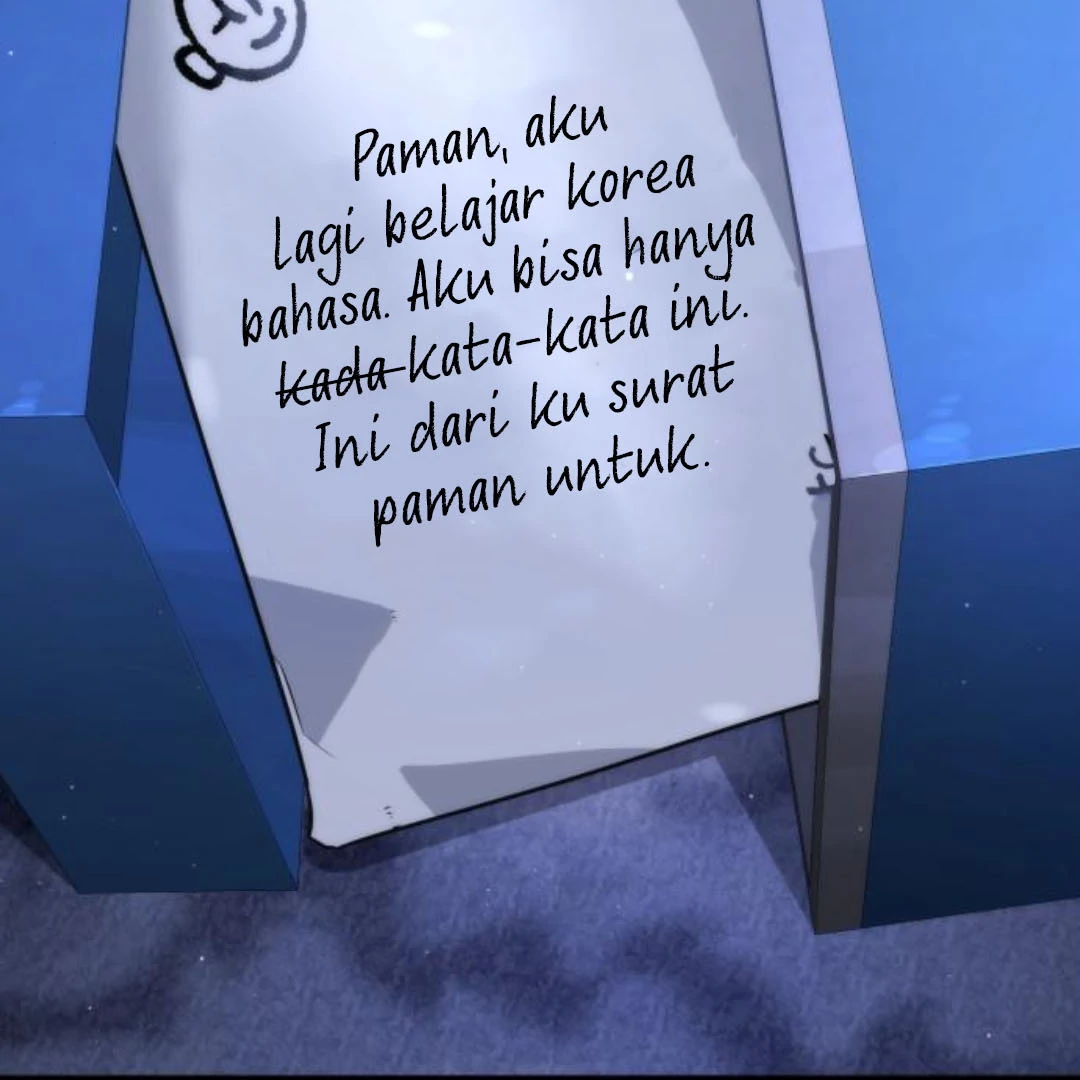 Paman, aku
lagi belajar korea
bahasa. Aku bisa hanya
kada kata-kata ini.
Ini dari ku surat
paman untuk.